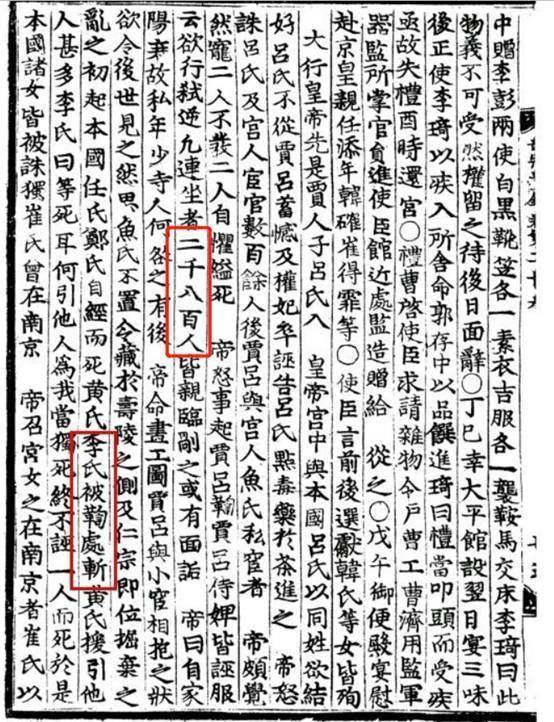 中贈李彭兩使白黑靴笠各一素衣吉服各一襲鞍馬交床李琦曰此
物義不可受然權留之待後日面辭○丁巳幸大平館設翌日宴三味
後正使李琦以疾入所舍命郭存中以品饌進琦曰禮當叩頭而受疾
亟故失禮酉時還宮○禮曹啓使臣求請雜物令戶曹工曹濟用監軍
器監所掌官員進使臣館近處監造贈給 從之○戊午御便殿宴慰
赴京皇親任添年韓確崔得霏等○使臣言前後選獻韓氏等女皆殉
大行皇帝先是賈人子呂氏入 皇帝宮中與本國呂氏以同姓欲結
好呂氏不從賈呂蓄憾及權妃卒誣告呂氏點毒藥於茶進之 帝怒
誅呂氏及宮人宦官數百餘人後賈呂與宮人魚氏私宦者 帝頗覺
然寵二人不發二人自懼縊死 帝怒事起賈呂鞫賈呂侍婢皆誣服
云欲行弑逆凡連坐者二千八百人皆親臨剮之或有面詬 帝曰自家
陽衰故私年少寺人何咎之有後 帝命畫工圖賈呂與小宦相抱之狀
欲令後世見之然思魚氏不置令藏於壽陵之側及仁宗即位掘棄之
亂之初起本國任氏鄭氏自經而死黃氏李氏被鞫處斬黃氏援引他
人甚多李氏曰等死耳何引他人爲我當獨死終不誣一人而死於是
本國諸女皆被誅獨崔氏曾在南京 帝召宮女之在南京者崔氏以